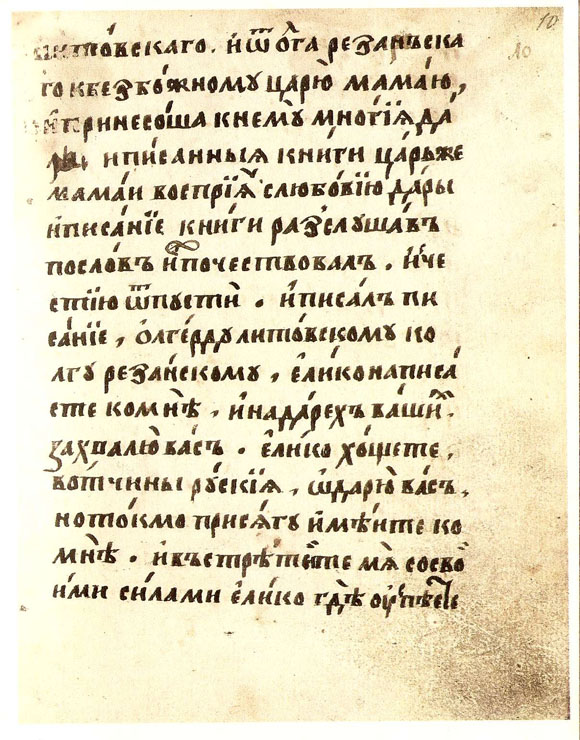 10
литовскаго . и҆ ѿ о҆лга резанъска
го к безбо́жному царю̀ мамаю̀,
и҆ принесо́ша к нему̀ мно́гїѧ да
ры и писанныѧ кни́ги царь же
мама́и восприѧ̀ с любо́вїю да́ры
и҆ писа́нїе кни́ги разслуша́въ
посло́въ и҆ почествовалъ . и҆ че
стїю ѿпусти̇̀ . и҆ писалъ пи
са́нїе , о҆лге́рду лито́вскому ѡ҆
лгу реза́нскому , е҆ли́ко написа́
сте ко мнѣ̀ , и҆ на да́рехъ ва́ши
захвалю̀ ва́съ . е҆ли́ко хо́щете ,
во́тчины ру́скїѧ , ѡ҆дарю̀ ва́съ ,
но то́кмо прися́гу и҆мѣ́ите ко
мнѣ̀ . и҆ въстрѣ́тите мѧ̀ со сво
и́ми си́лами е҆ли́ко гдѣ̀ оу҆спѣ́е